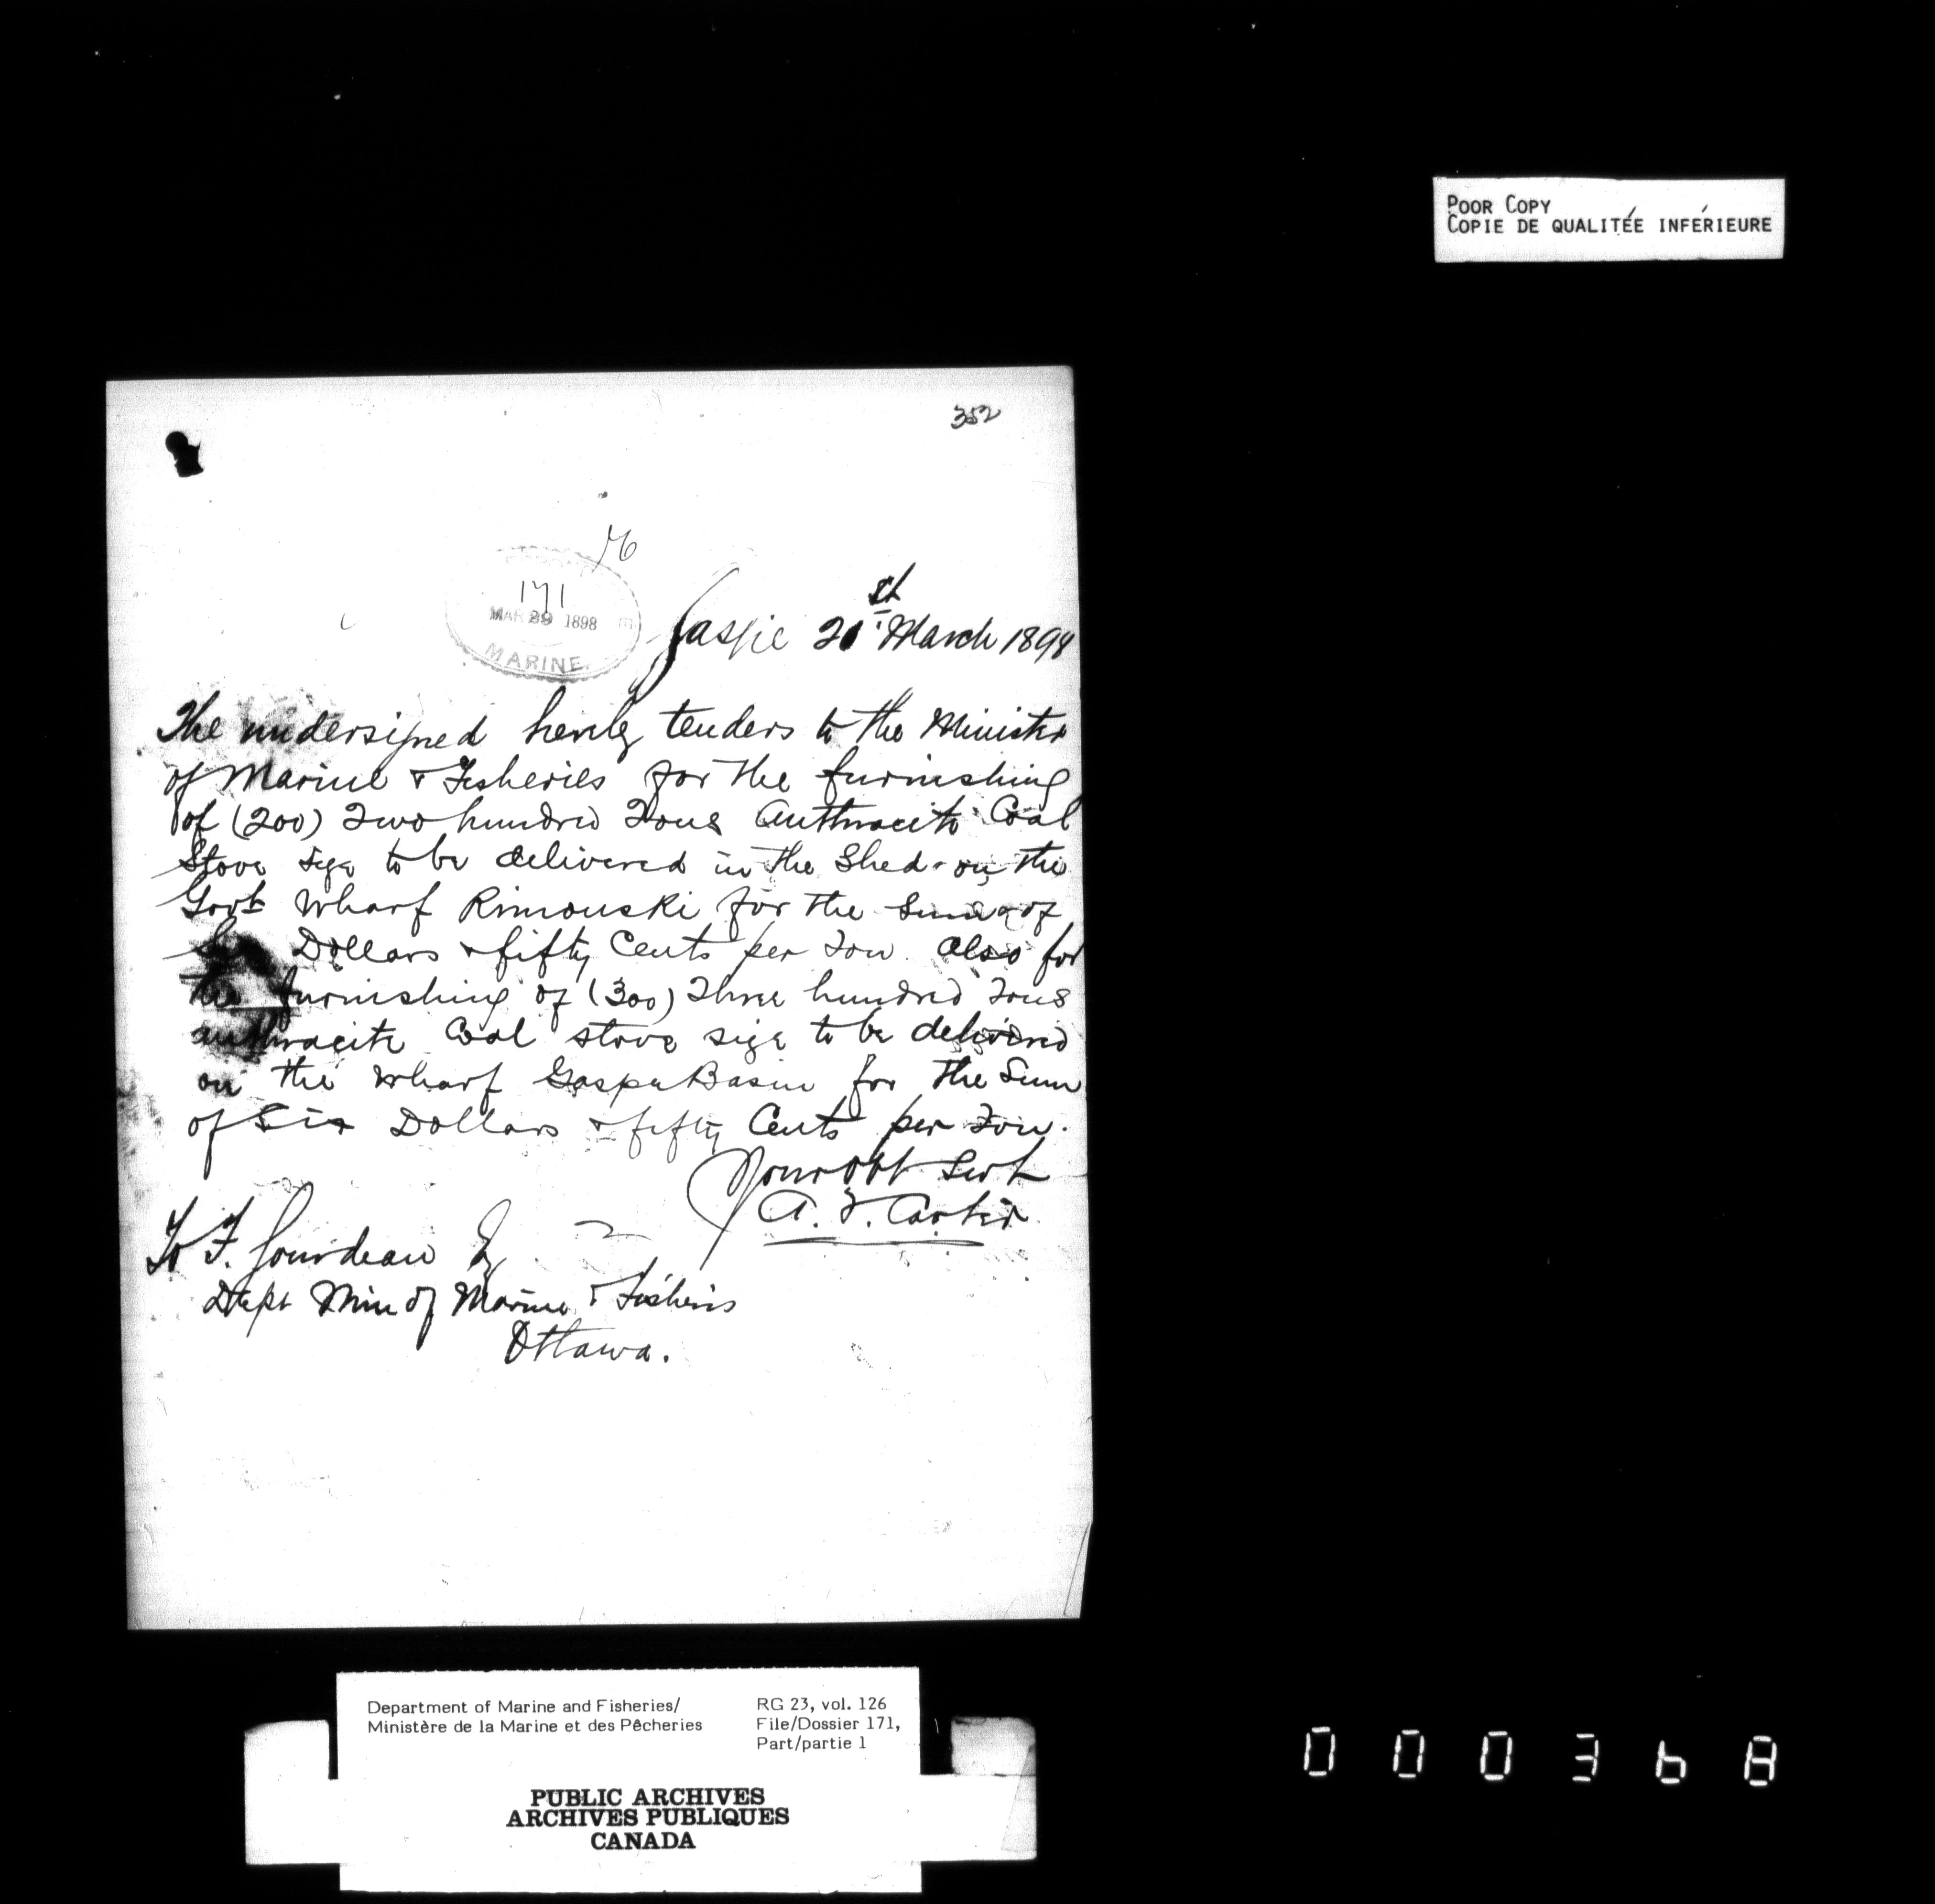 POOR COPY
COPIE DE QUALITÉE INFÉRIEURE
352
76
171
MAR 29 1898
MARINE
Gaspie 21st March 1898
The undersigned hereby tenders to the Minister
of Marine & Fisheries for the furnishing
of (200) Two hundred Tons Anthracite Coal
Stove size to be delivered in the Shed on the
Govt Wharf Rimouski for the Sum of
Dollars & fifty Cents per Ton. Also for
the furnishing of (300) Three hundred Tons
anthracite Coal stove size to be delivered
on the Wharf Gaspe Basin for the Sum
of Six Dollars & fifty Cents per Ton.
Your Obt Servt
A. F. Carter
To F. Gourdeau Esq
Dept Min of Marine & Fisheries
Ottawa.
Department of Marine and Fisheries/
Ministère de la Marine et des Pêcheries
RG 23, vol. 126
File/Dossier 171,
Part/partie 1
PUBLIC ARCHIVES
ARCHIVES PUBLIQUES
CANADA
000368